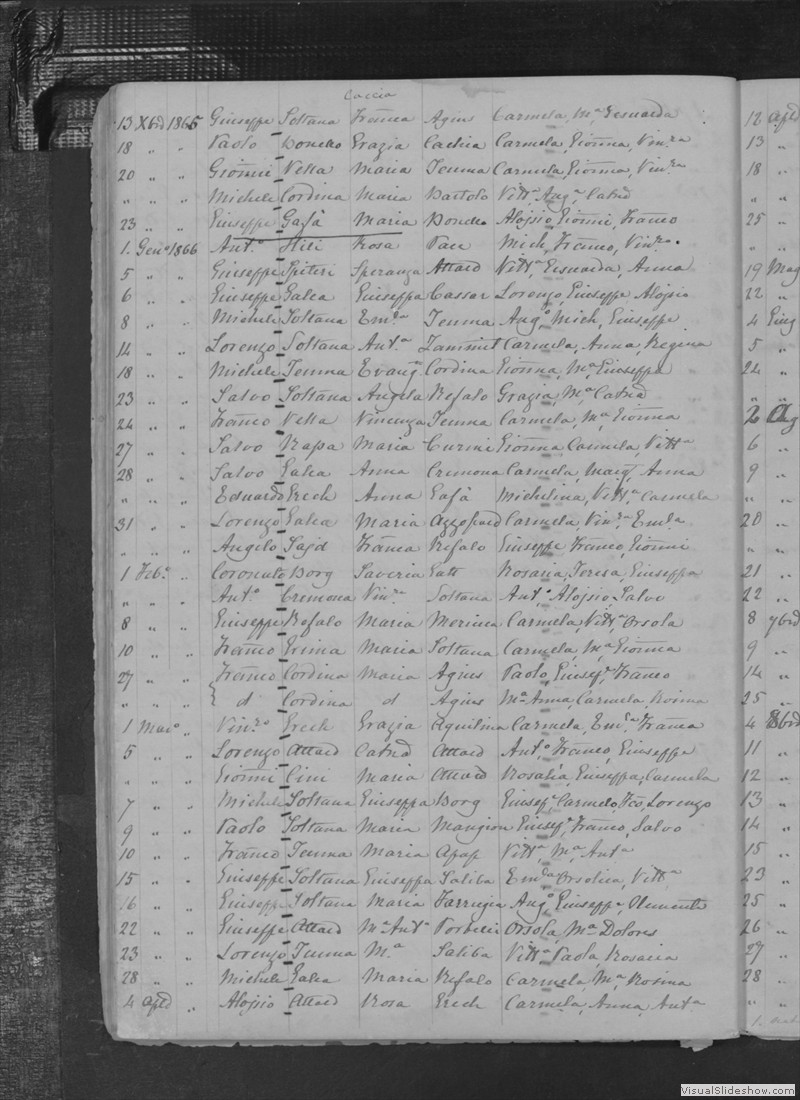 Caccia
13 Xbrd 1865 Giuseppe Soltana Franca Agius Carmela, Ma
18 " " Paolo Grazia Carmela, Gioñna, Vinza
20 " " Gioñni Vella Maria Temma Carmela, Gioñna, Vinza
" " " Michele Cordina Maria Bartolo Vitta Anga
23 " " Giuseppe Gafà Maria Alojsio, Gioñni, Franco
1. Geno 1866 Anto Hili Rosa Pace Mich, Franco, Vinzo.
5 " " Giuseppe Spiteri Speranza Attard Vitta Anna
6 " " Giuseppe Galea Giuseppa Cassar Lorenzo, Giuseppe Alojsio
8 " " Michele Soltana Temma Ango Mich, Giuseppe
14 " " Lorenzo Soltana Anta Zammit Carmela, Anna, Regina
18 " " Michele Temma Cordina Gioñna, Ma Giuseppa
23 " " Salvo Soltana Angela Refalo Grazia, Ma
24 " " Franco Vella Vincenza Temma Carmela, Ma Gioñna
27 " " Salvo Rapa Maria Curmi Gioñna Carmela, Vitta
28 " " Salvo Galea Anna Cremona Carmela, Anna
" " " Eduardo Grech Anna Gafà Michelina, Vitta Carmela
31 " " Lorenzo Galea Maria Azzopard Carmela, Vinza
" " " Angelo Sajd Franca Refalo Giuseppe Franco, Gioñni
1 Febo " Coronato Borg Saveria Gatt Rosaria, Teresa, Giuseppa
" " " Anto Cremona Vinza Soltana Anto, Alojsio, Salvo
8 " " Giuseppe Refalo Maria Carmela, Vitta Orsola
10 " " Franco Maria Soltana Carmela, Ma Gioñna
27 " " Franco Cordina Maria Agius Paolo, Franco
" " " d Cordina d Agius Ma Anna, Carmela, Rosina
1 Maro " Vinzo Grech Grazia Aquilina Carmela, Franca
5 " " Lorenzo Attard Attard Anto, Franco, Giuseppe
" " " Gioñni Cini Maria Attard Rosalia, Giuseppa, Carmela
7 " " Michele Soltana Giuseppa Borg Carmelo, Fco, Lorenzo
9 " " Paolo Soltana Maria Mangion Franco, Salvo
10 " " Franco Temma Maria Apap Vitta Ma Anta
15 " " Giuseppe Soltana Giuseppa Saliba Vitta
16 " " Giuseppe Soltana Maria Farrugia Ango Giuseppe, Clemente
22 " " Giuseppe Attard Ma Anta Orsola, Ma Dolores
23 " " Lorenzo Temma Ma Saliba Vitta Paola, Rosaria
28 " " Michele Galea Maria Refalo Carmela, Ma Rosina
4 Aple " Alojsio Attard Rosa Grech Carmela, Anna, Anta
12
13 "
18 "
25 "
" "
19 Mag
22 "
4 Giug
5 "
22 "
" "
2 Ag
6 "
9 "
20 "
21 "
22 "
8 7brd
9 "
14 "
25 "
4 8brd
11 "
12 "
13 "
14 "
15 "
23 "
25 "
26 "
27 "
28 "
" "
VisualSlideshow.com